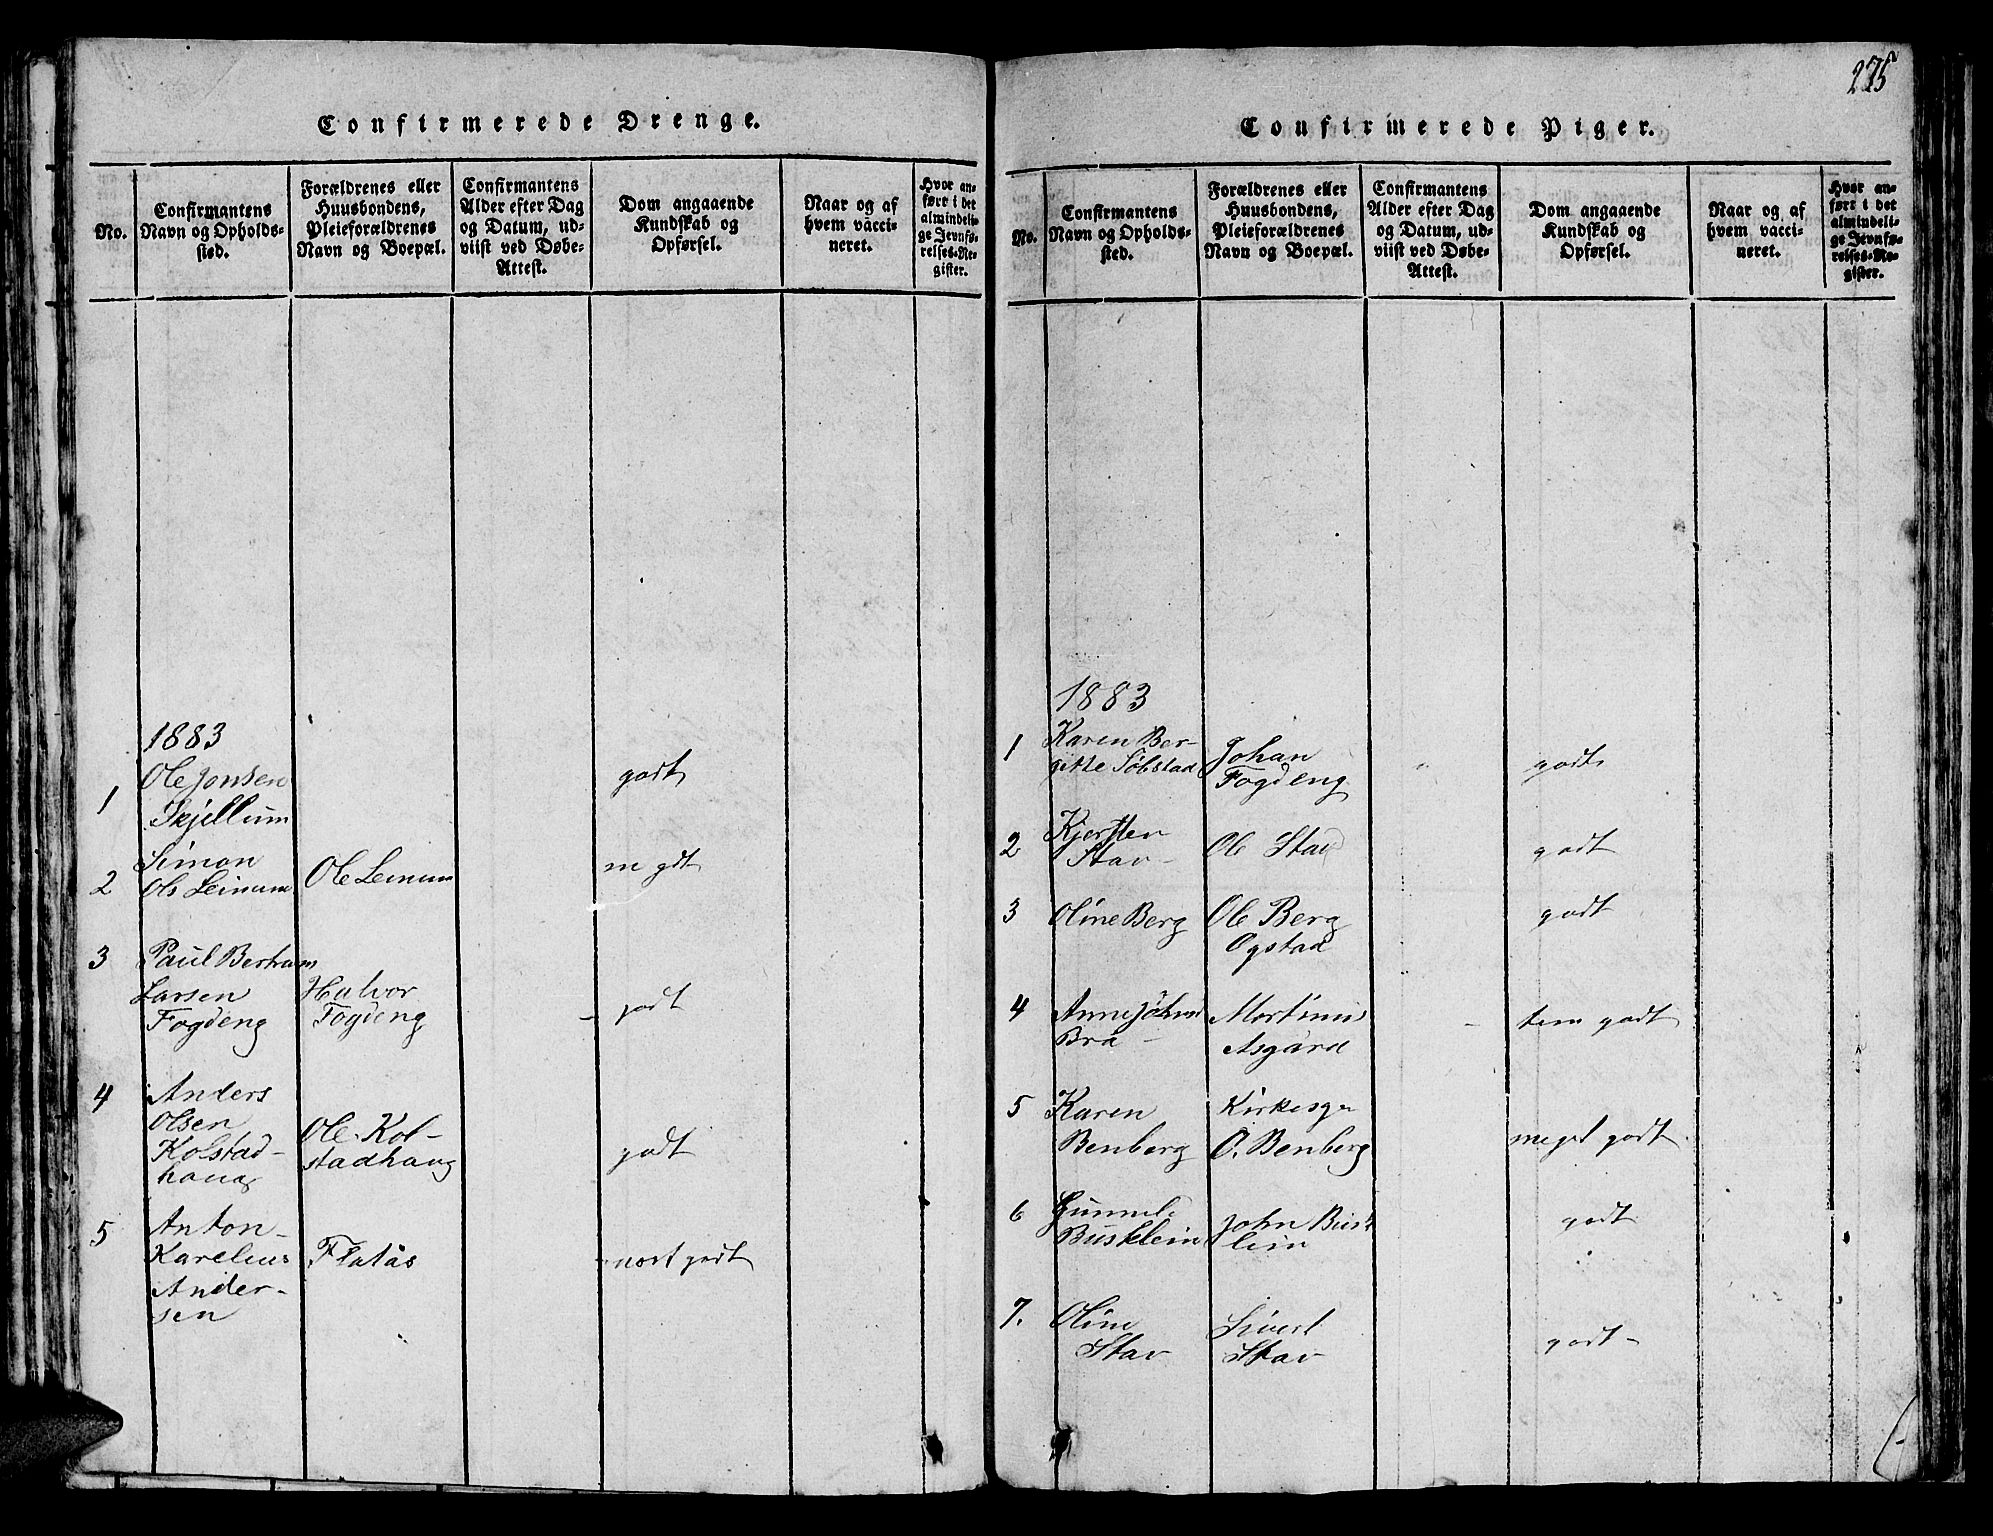 275
Confirmerede Drenge.
No.
Confirmantens
Navn og Opholds-
sted.
Forældrenes eller
Huusbondens,
Pleieforældrenes
Navn og Boepæl.
Confirmantens
Alder efter Dag
og Datum, ud-
viist ved Døbe-
Attest.
Dom angaaende
Kundskab og
Opførsel.
Naar og af
hvem vacci-
neret.
Hvor an-
ført i det
almindeli-
ge Jevnfø-
relses-Re-
gister.
1883
1
Ole Jonsen
Skjellum
godt
2
Simon
Ols Leinum
Ole Leinum
m gdt
3
Paul Bertram
Larsen
Fogdeng
Halvor
Fogdeng
godt
4
Anders
Olsen
Kolstad-
haug
Ole Kol-
stadhaug
godt
5
Anton
Karelius
Ander-
sen
Flatås
godt
Confirmerede Piger.
No.
Confirmantens
Navn og Opholds-
sted.
Forældrenes eller
Huusbondens,
Pleieforældrenes
Navn og Boepæl.
Confirmantens
Alder efter Dag
og Datum, ud-
viist ved Døbe-
Attest.
Dom angaaende
Kundskab og
Opførsel.
Naar og af
hvem vacci-
neret.
Hvor an-
ført i det
almindeli-
ge Jevnfø-
relses-Re-
gister.
1883
1
Karen Ber-
gitte Söbstad
Johan
Fogdeng
godt
2
Stav
Ole Stav
godt
3
Oline Berg
Ole Berg
Ogstad
godt
4
Anne
Bra
Asgård
tem godt
5
Karen
Benberg
Kirkesgr
O. Benberg
meget godt
6
Busklein
John Busk
lein
godt
7.
Oline
Stav
Sivert
Stav
godt